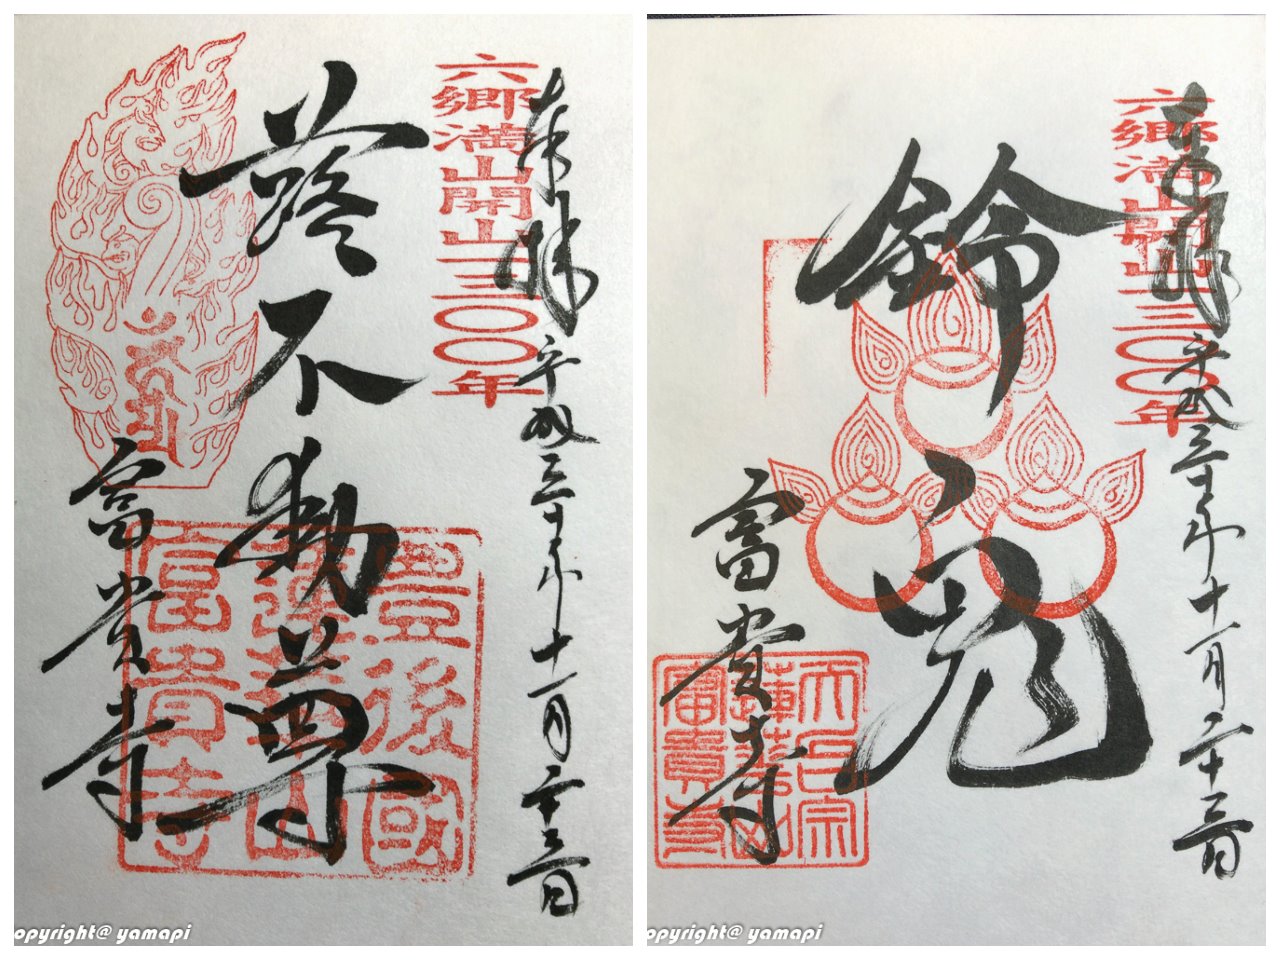 奉拝 平成三十年十一月二十三日
六郷満山開山一三〇〇年
蕗不動尊
富貴寺
豊後國
蓮華山
富貴寺
opyright@ yamapi
奉拝 平成三十年十一月二十三日
六郷満山開山一三〇〇年
富貴寺
天台宗
蓮華山
富貴寺
opyright@ yamapi